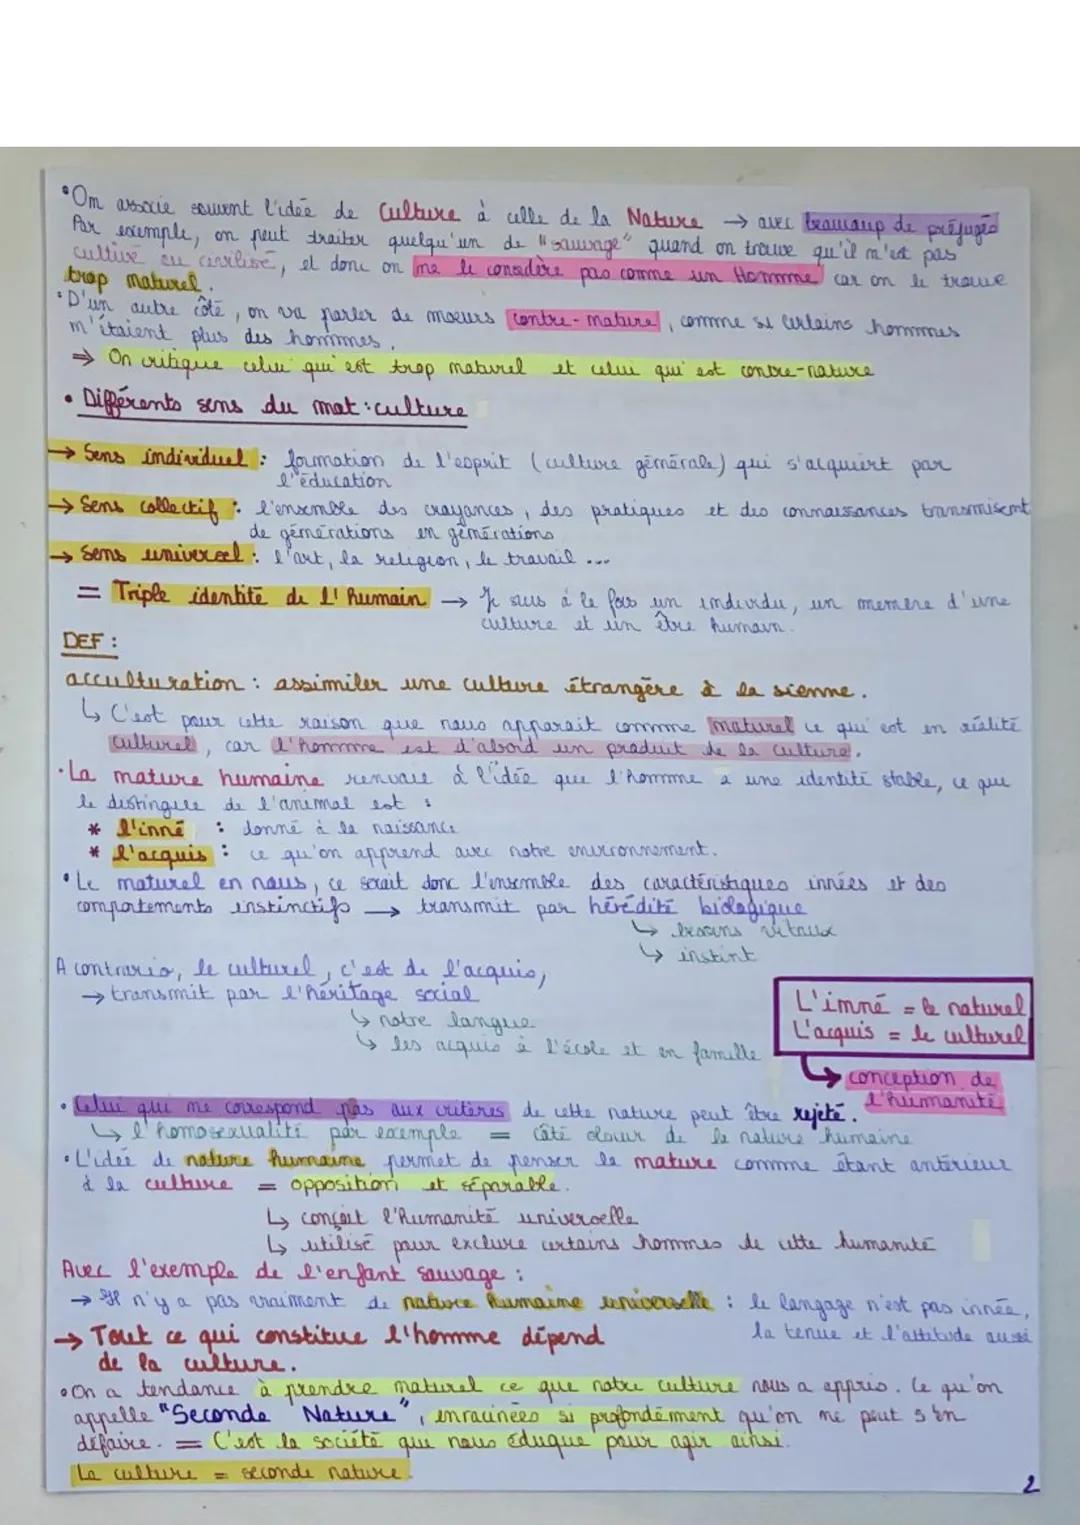 • On associe souvent l'idée de Culture à celle de la Nature → avec beaucoup de préjugés
Par exemple, on peut traiter quelqu'un de "sauvage" quand on trouve qu'il n'est pas
cultivé ou civilisé, et donc on ne le considère pas comme un Homme car on le trouve
trop naturel.
• D'un autre côté, on va parler de moeurs contre-nature, comme si certains hommes
n'étaient plus des hommes.
⇒ On critique celui qui est trop naturel et celui qui est contre-nature
• Différents sens du mot : culture
→ Sens individuel : formation de l'esprit (culture générale) qui s'acquiert par
l'éducation
→ Sens collectif : l'ensemble des croyances, des pratiques et des connaissances transmisent
de générations en générations
→ Sens universel : l'art, la religion, le travail ...
= Triple identité de l'humain → Je suis à la fois un individu, un membre d'une
culture et un être humain.
DEF :
acculturation : assimiler une culture étrangère à la sienne.
↳ C'est pour cette raison que nous apparait comme naturel ce qui est en réalité
culturel, car l'homme est d'abord un produit de la culture.
• La nature humaine renvoie à l'idée que l'homme a une identité stable, ce que
le distingue de l'animal est :
* l'inné : donné à la naissance
* l'acquis : ce qu'on apprend avec notre environnement.
• Le naturel en nous, ce serait donc l'ensemble des caractéristiques innées et des
comportements instinctifs → transmit par hérédité biologique
↳ besoins vitaux
↳ instint
A contrario, le culturel, c'est de l'acquis,
→ transmit par l'héritage social
↳ notre langue
↳ les acquis à l'école et en famille
L'inné = le naturel
L'acquis = le culturel
↳ conception de
l'humanité
• Celui qui ne correspond pas aux critères de cette nature peut être rejeté.
↳ l'homosexualité par exemple = côté obscur de la nature humaine
• L'idée de nature humaine permet de penser la nature comme étant antérieur
à la culture = opposition et séparable.
↳ conçoit l'humanité universelle
↳ utilisé pour exclure certains hommes de cette humanité
Avec l'exemple de l'enfant sauvage :
→ Il n'y a pas vraiment de nature humaine universelle : le langage n'est pas innée,
la tenue et l'attitude aussi
→ Tout ce qui constitue l'homme dépend
de la culture.
• On a tendance à prendre naturel ce que notre culture nous a appris. Ce qu'on
appelle "Seconde Nature", enracinées si profondément qu'on ne peut s'en
défaire. = C'est la société qui nous éduque pour agir ainsi.
La culture = seconde nature.
2